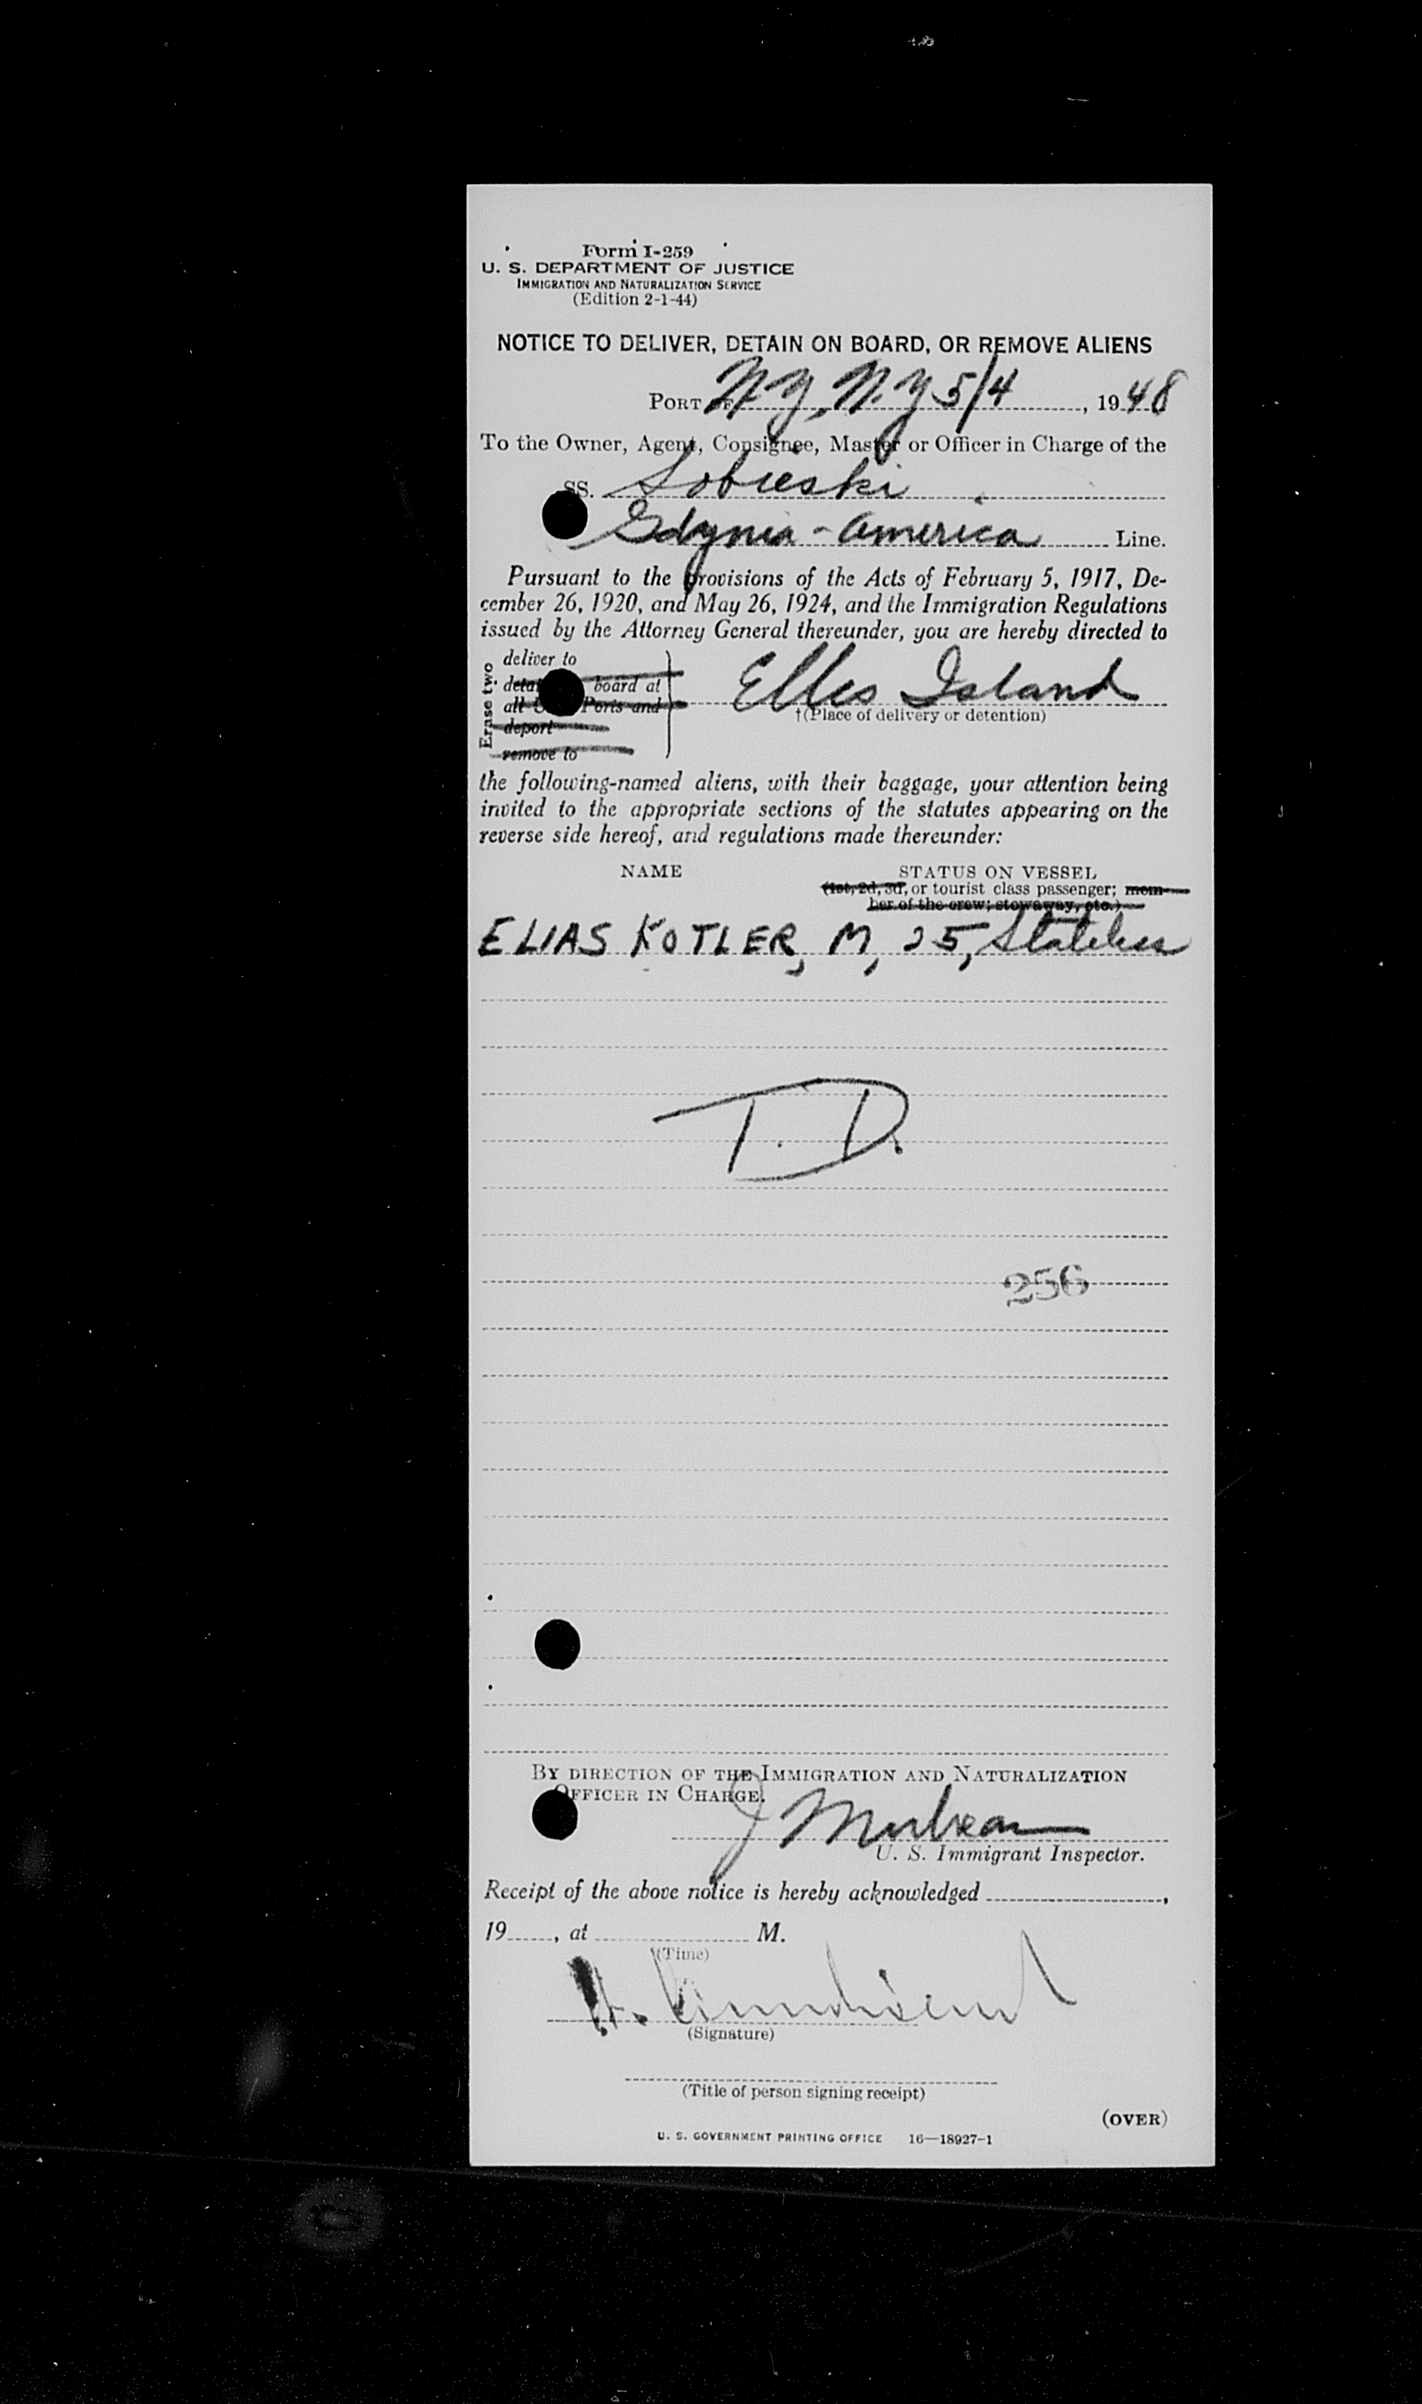 Form I-259
U. S. DEPARTMENT OF JUSTICE
IMMIGRATION AND NATURALIZATION SERVICE
(Edition 2-1-44)
NOTICE TO DELIVER, DETAIN ON BOARD, OR REMOVE ALIENS
PORT OF N.Y, N.Y 5/4, 1948
To the Owner, Agent, Consignee, Master or Officer in Charge of the
SS. Sobieski
Gdynia-America Line.
Pursuant to the provisions of the Acts of February 5, 1917, De-
cember 26, 1920, and May 26, 1924, and the Immigration Regulations
issued by the Attorney General thereunder, you are hereby directed to
Erase two
deliver to
board at
all Ports and
deport
remove to
Ellis Island
†(Place of delivery or detention)
the following-named aliens, with their baggage, your attention being
invited to the appropriate sections of the statutes appearing on the
reverse side hereof, and regulations made thereunder:
NAME STATUS ON VESSEL
(1st, 2d, 3d, or tourist class passenger; mem-
ber of the crew; stowaway, etc.)
ELIAS KOTLER, M, 25, Stateless
T. D.
256
BY DIRECTION OF THE IMMIGRATION AND NATURALIZATION
OFFICER IN CHARGE.
J
U. S. Immigrant Inspector.
Receipt of the above notice is hereby acknowledged ,
19 , at M.
(Time)
H.
(Signature)
(Title of person signing receipt)
(OVER)
U. S. GOVERNMENT PRINTING OFFICE 16—18927-1